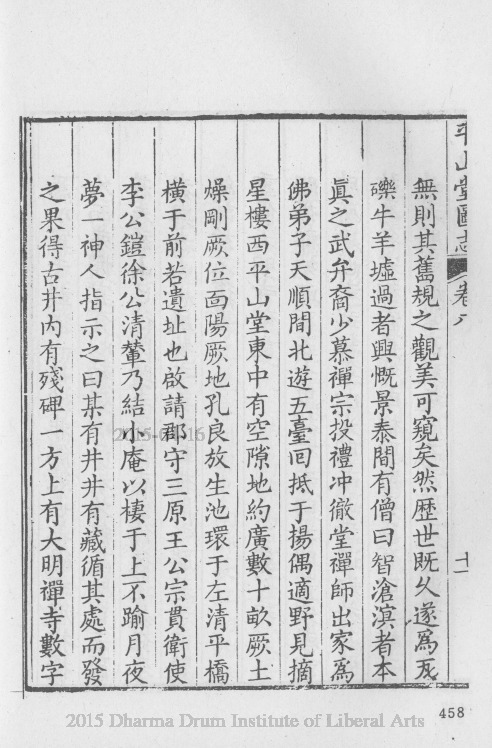 平山堂圖志 卷八 十一
無則其舊規之觀美可窺矣然歷世既久遂為瓦
礫牛羊墟過者興慨景泰間有僧曰智滄溟者本
眞之武弁裔少慕禪宗投禮冲徹堂禪師出家爲
佛弟子天順間北遊五臺回抵于揚偶適野見摘
星樓西平山堂東中有空隙地約廣數十畝厥土
燥剛厥位面陽厥地孔良放生池環于左清平橋
橫于前若遺址也啟請郡守三原王公宗貫衛使
李公鎧徐公清輦乃結小庵以棲于上不踰月夜
夢一神人指示之曰某有井井有藏循其處而發
之果得古井內有殘碑一方上有大明禪寺數字
458
2015 Dharma Drum Institute of Liberal Arts